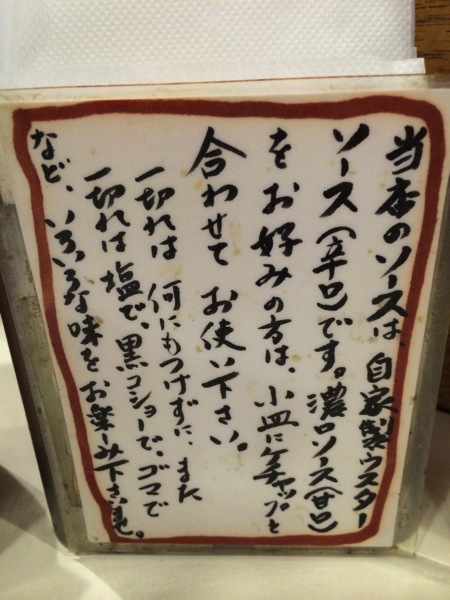 当店のソースは、自家製ウスター
ソース(辛口)です。濃口ソース(甘口)
をお好みの方は、小皿にケチャップと
合わせて お使い下さい。
一切れは 何にもつけずに、また
一切れは塩で、黒コショーで、ゴマで
など、いろいろな味をお楽しみ下さいませ。